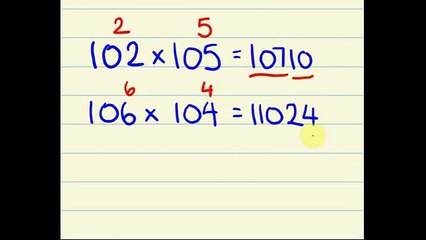 2 5
102 × 105 = 10710
6 4
106 × 104 = 11024